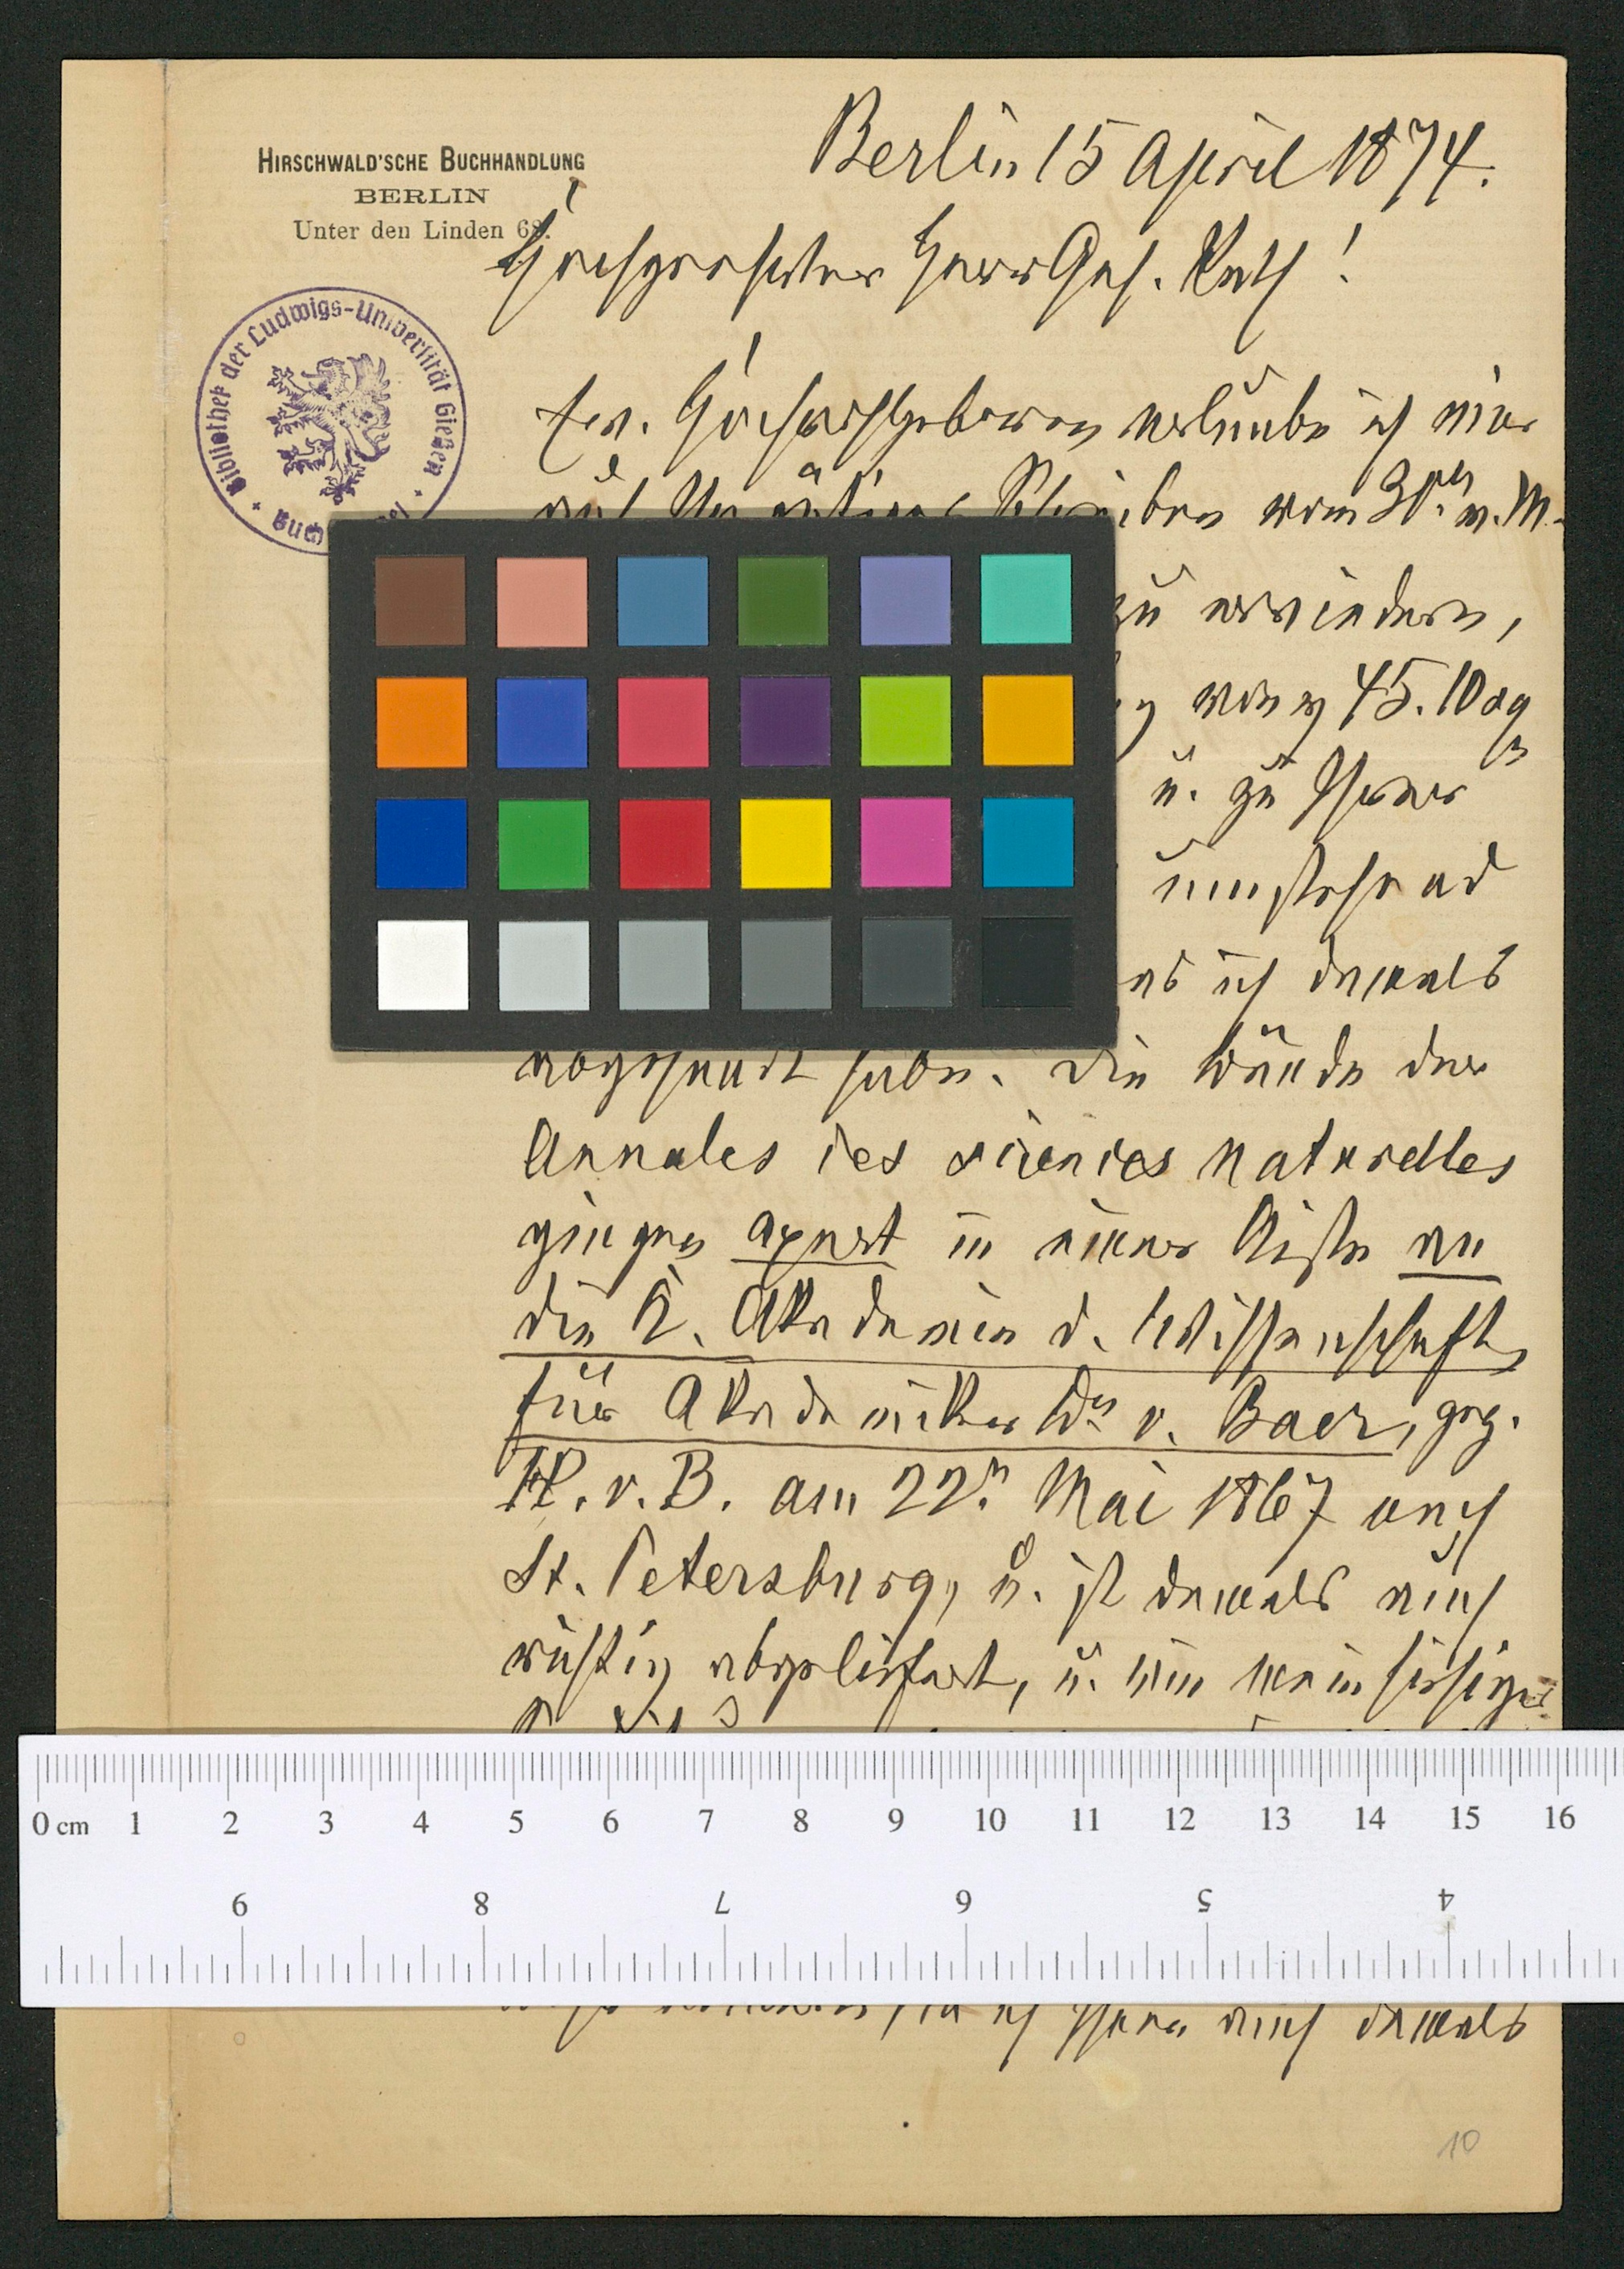 HIRSCHWALD'SCHE BUCHHANDLUNG
BERLIN
Unter den Linden 68.
Berlin 15 April 1874.
Hochgeehrter Herr Geh. Rath!
Bibliothek der Ludwigs-Universität Gießen
Ew. Hochwohlgeboren erlaube ich mir
auf Ihr Schreiben vom 30n v. M.
zu erwiedern,
von 45. 10
u. zu Ihrer
umstehend
ich damals
abgesandt habe. Die Bände der
Annales des sciences naturelles
gingen apart in einer Kiste an
die K. Akademie d. Wissenschaft,
für Akademiker Dr v. Baer, gez.
v. B. am 22n Mai 1867 nach
St. Petersburg, u. ist damals auch
richtig abgeliefert, u. wie mein hiesiger
0 cm 1 2 3 4 5 6 7 8 9 10 11 12 13 14 15 16
9 8 7 6 5 4
ich Ihnen auch damals
10